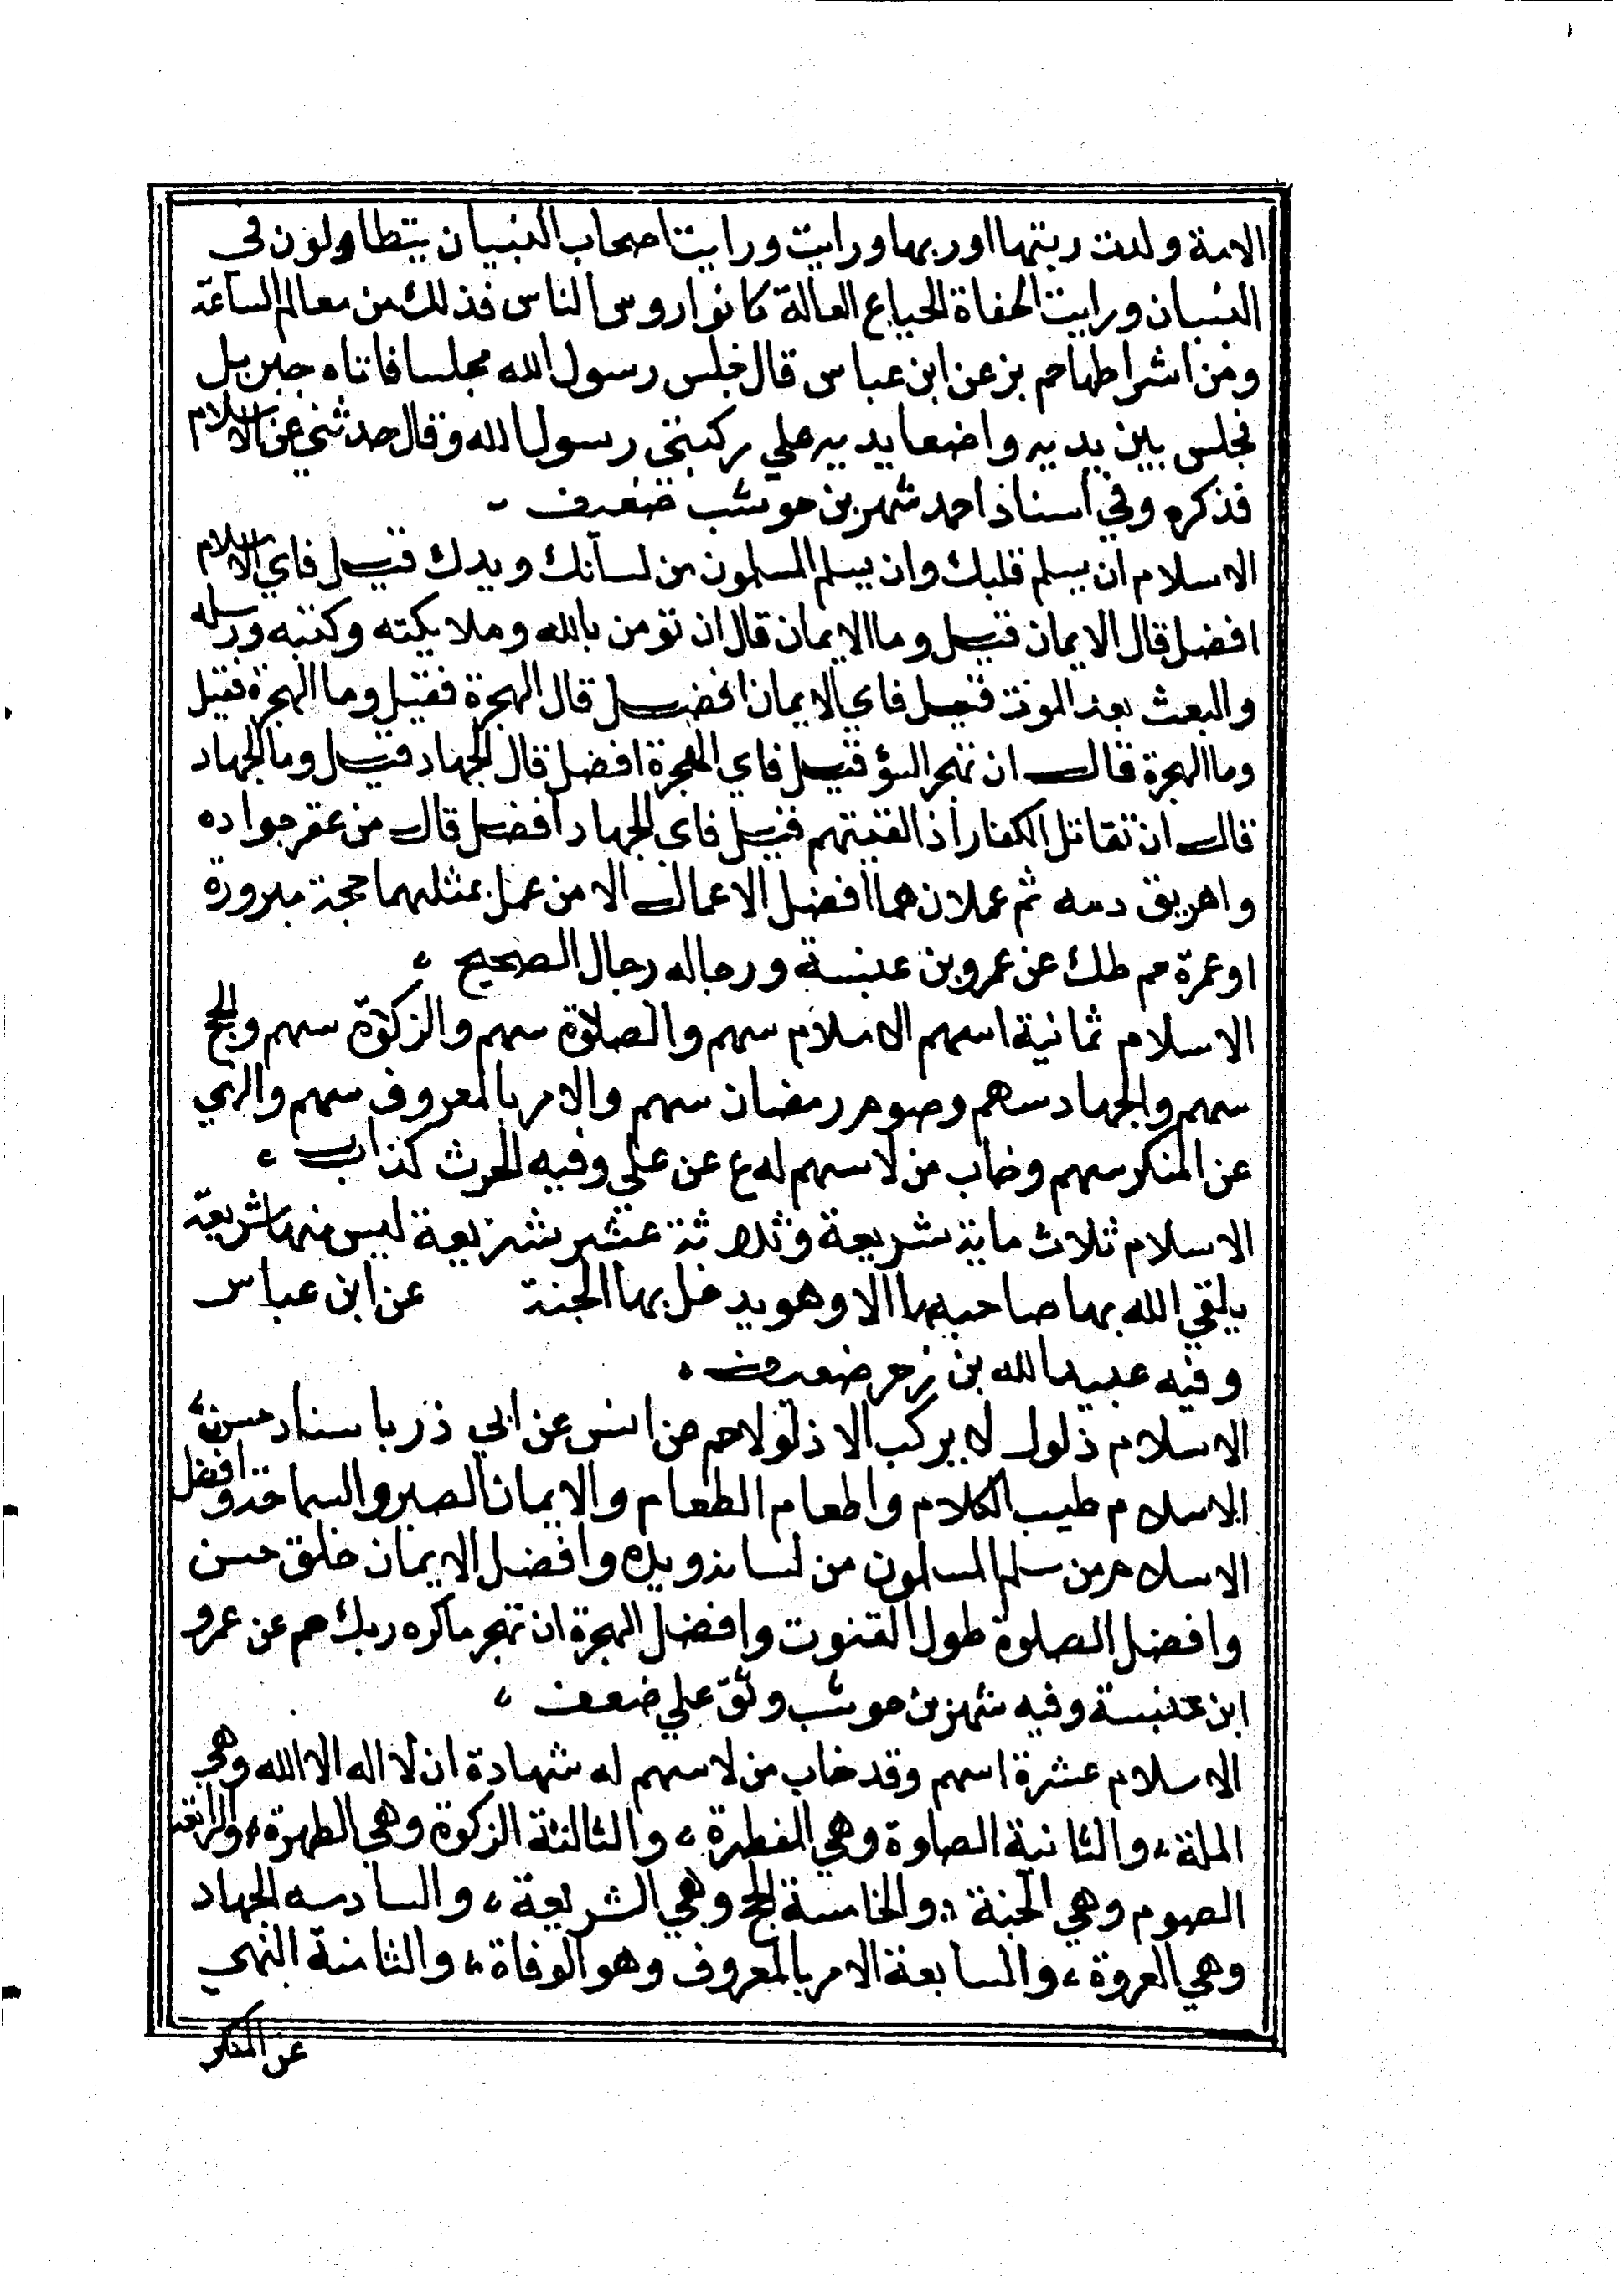 الامة ولدت ربتها اوربها ورايت ورايت اصحاب البنيان يتطاولون في
البنيان ورايت الحفاة الجياع العالة كانوا روس الناس فذلك من معالم الساعة
ومن اشراطها حم بز عن ابن عباس قال جلس رسول الله مجلسا فاتاه جبريل
فجلس بين يديه واضعا يديه علي ركبتي رسول الله وقال حدثني عن الاسلام
فذكره وفي اسناد احمد شهر بن حوشب ضعيف
الاسلام ان يسلم قلبك وان يسلم المسلمون من لسانك ويدك قيل فاي الاسلام
افضل قال الايمان قيل وما الايمان قال ان تومن بالله وملايكته وكتبه ورسله
والبعث بعد الموت قيل فاي الايمان افضل قال الهجرة فقيل وما الهجرة فقيل
وما الهجرة قال ان تهجر السؤ قيل فاي الهجرة افضل قال الجهاد قيل وما الجهاد
قال ان تقاتل الكفار اذا لقيتهم قيل فاي الجهاد افضل قال من عقر جواده
واهريق دمه ثم عملان هما افضل الاعمال الا من عمل بمثلهما حجة مبرورة
او عمرة حم طك عن عمرو بن عنبسة ورجاله رجال الصحيح
الاسلام ثمانية اسهم الاسلام سهم والصلاة سهم والزكوة سهم والحج
سهم والجهاد سهم وصوم رمضان سهم والامر بالمعروف سهم والنهي
عن المنكر سهم وخاب من لا سهم له ع عن علي وفيه الحرث كذاب
الاسلام ثلاث ماية شريعة وثلاثة عشر شريعة ليس منها شريعة
يلقي الله بها صاحبها الا وهو يدخل بها الجنة عن ابن عباس
وفيه عبيد الله بن زحر ضعيف
الاسلام ذلول لا يركب الا ذلولا حم عن انس عن ابي ذر باسناد حسن
الاسلام طيب الكلام واطعام الطعام والايمان الصبر والسماحة وافضل
الاسلام من سلم المسلمون من لسانه ويده وافضل الايمان خلق حسن
وافضل الصلوة طول القنوت وافضل الهجرة ان تهجر ماكره ربك حم عن عمرو
ابن عنبسة وفيه شهر بن حوشب وثق علي ضعف
الاسلام عشرة اسهم وقد خاب من لا سهم له شهادة ان لا اله الا الله وهي
الملة، والثانية الصلوة وهي الفطرة، والثالثة الزكوة وهي الطهرة، والرابعة
الصوم وهي الجنة، والخامسة الحج وهي الشريعة، والسادسه الجهاد
وهي العروة، والسابعة الامر بالمعروف وهو الوفاة، والثامنة النهي
عن المنكر